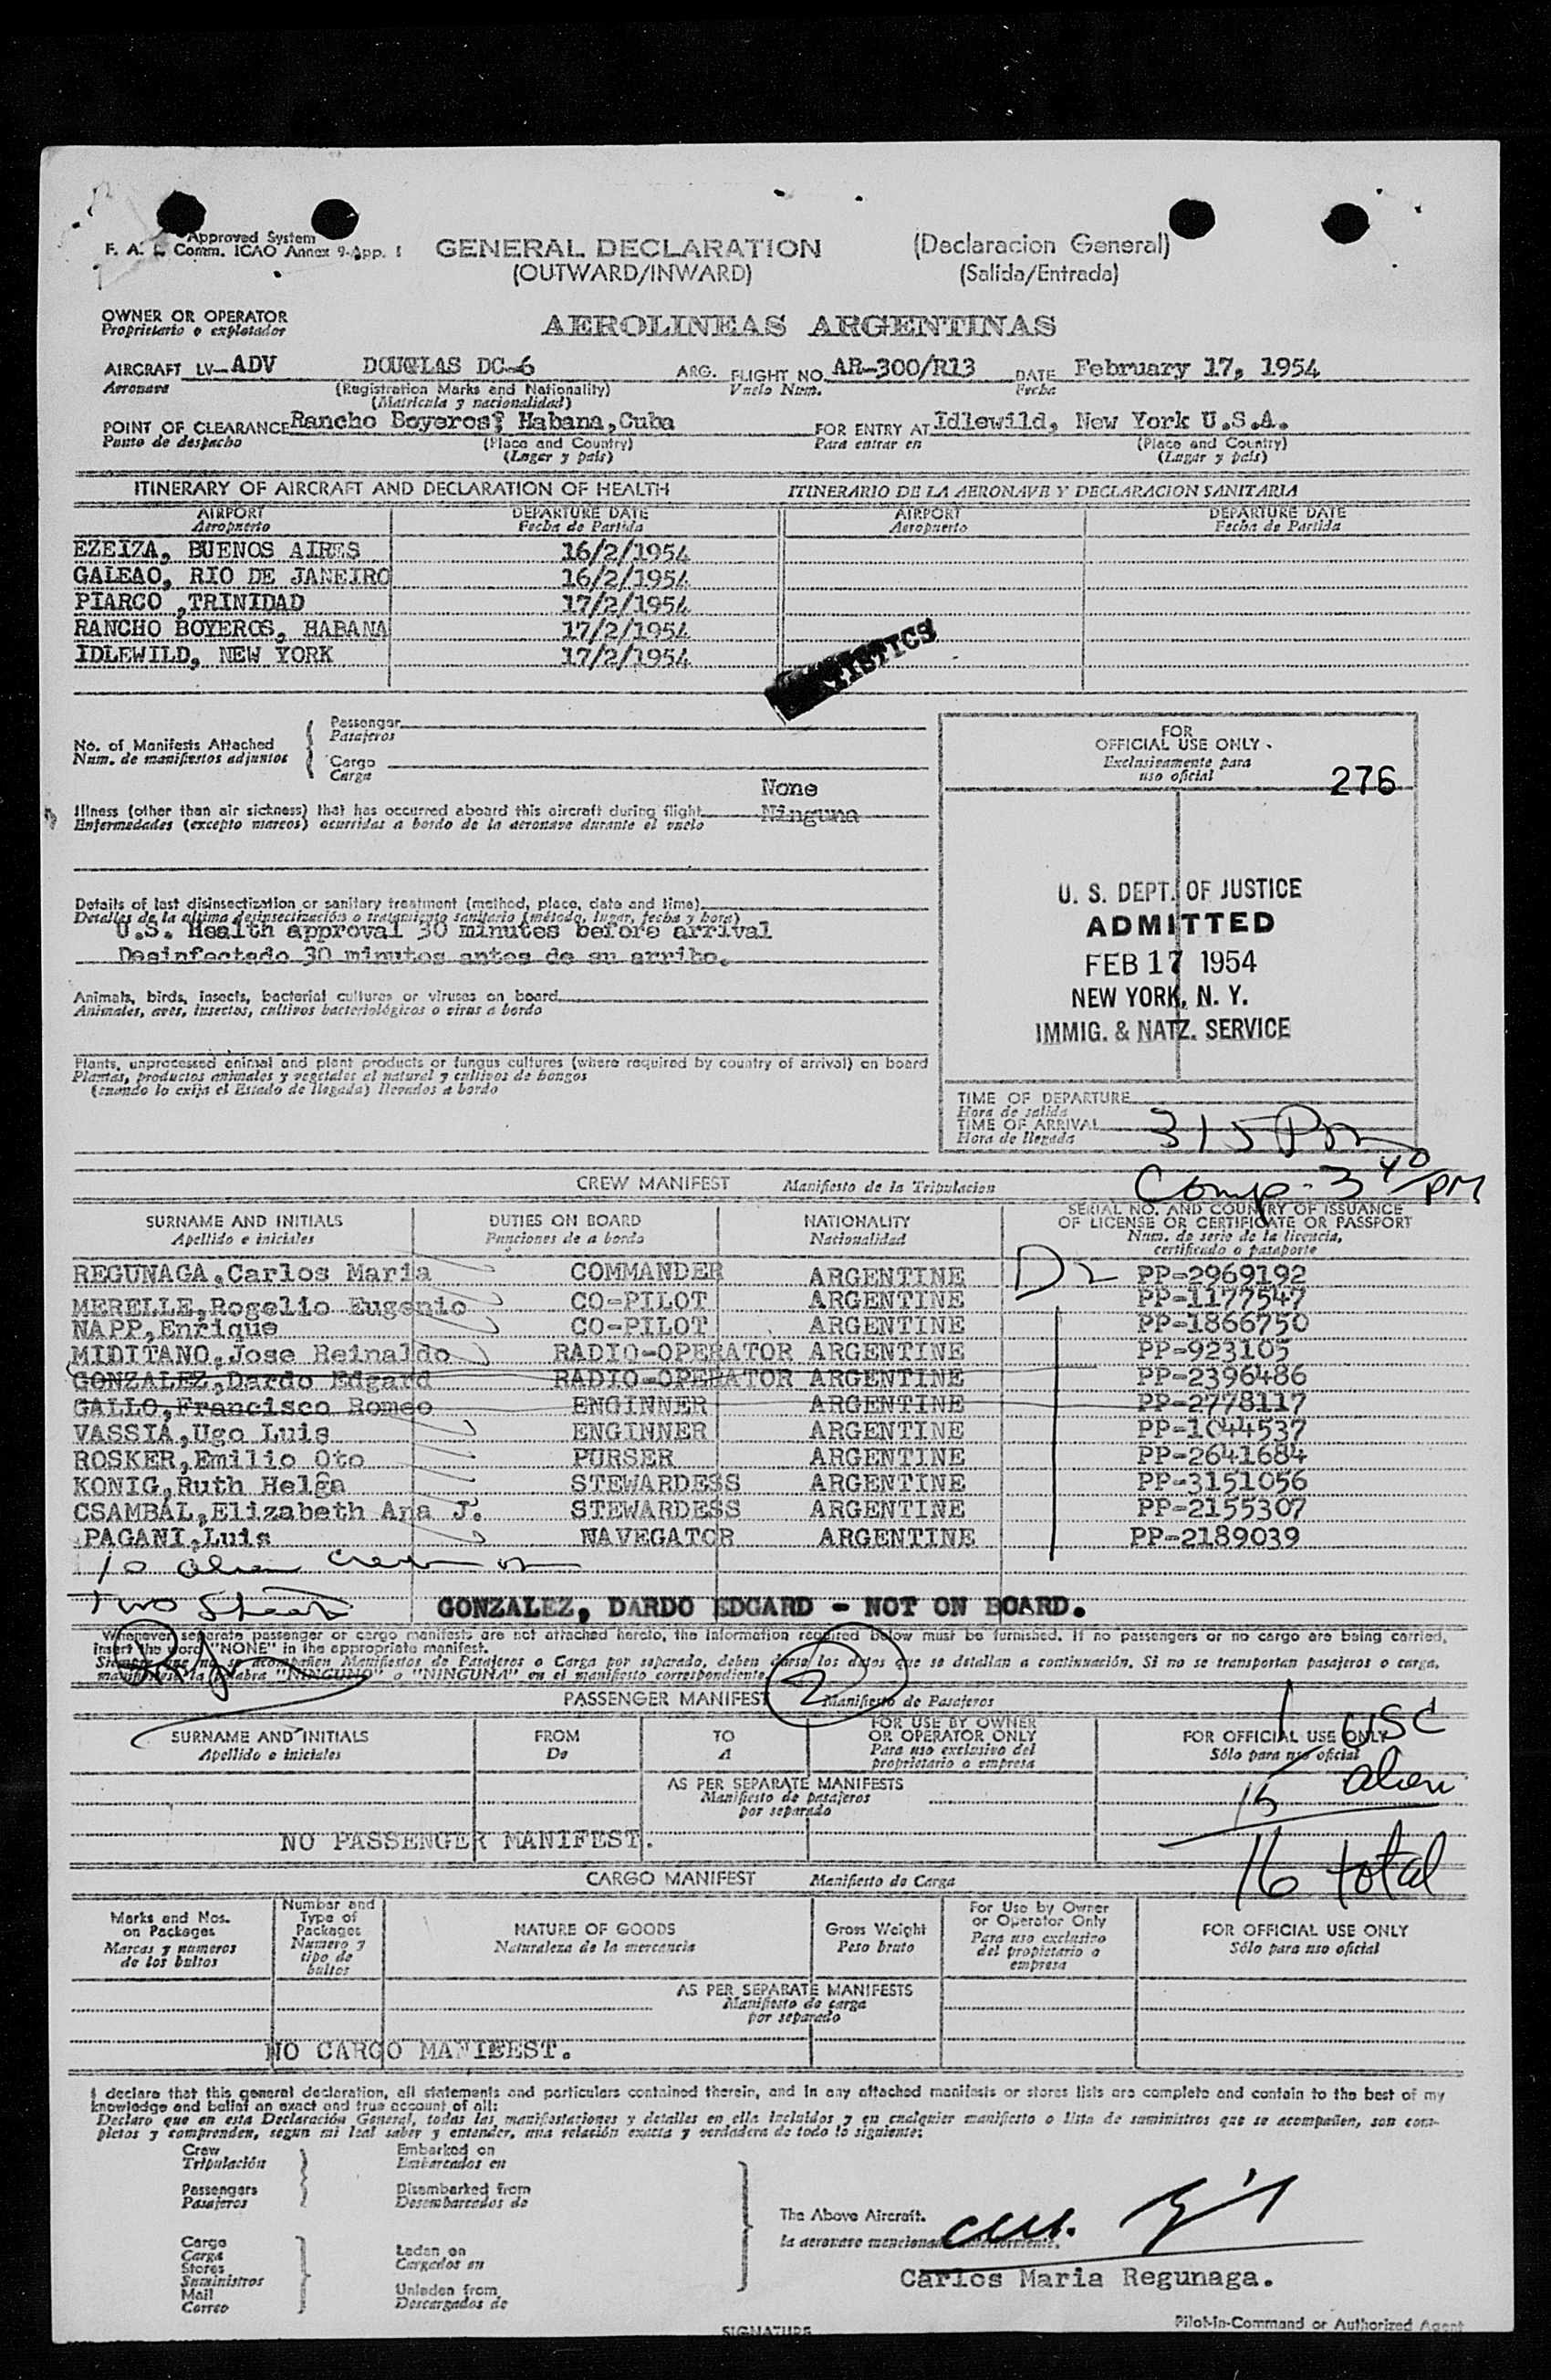 Approved System
F. A. L. Comm. ICAO Annex 9-App. 1
GENERAL DECLARATION
(OUTWARD/INWARD)
(Declaracion General)
(Salida/Entrada)
OWNER OR OPERATOR
Proprietario o explotador
AEROLINEAS ARGENTINAS
AIRCRAFT LV-ADV DOUGLAS DC-6 ARG. FLIGHT NO. AR-300/R13 DATE February 17, 1954
Aeronave (Registration Marks and Nationality) Vuelo Num. Fecha
(Matricula y nacionalidad)
POINT OF CLEARANCE Rancho Boyeros; Habana, Cuba FOR ENTRY AT Idlewild, New York U.S.A.
Punto de despacho (Place and Country) Para entrar en (Place and Country)
(Lugar y pais) (Lugar y pais)
ITINERARY OF AIRCRAFT AND DECLARATION OF HEALTH ITINERARIO DE LA AERONAVE Y DECLARACION SANITARIA
AIRPORT DEPARTURE DATE AIRPORT DEPARTURE DATE
Aeropuerto Fecha de Partida Aeropuerto Fecha de Partida
EZEIZA, BUENOS AIRES 16/2/1954
GALEAO, RIO DE JANEIRO 16/2/1954
PIARCO ,TRINIDAD 17/2/1954
RANCHO BOYEROS, HABANA 17/2/1954
IDLEWILD, NEW YORK 17/2/1954
No. of Manifests Attached
Num. de manifiestos adjuntos
Passenger
Pasajeros
Cargo
Carga
None
Illness (other than air sickness) that has occurred aboard this aircraft during flight Ninguna
Enfermedades (excepto mareos) ocurridas a bordo de la aeronave durante el vuelo
Details of last disinsectization or sanitary treatment (method, place, date and time)
Detalles de la ultima desinsectización o tratamiento sanitario (método, lugar, fecha y hora)
U.S. Health approval 30 minutes before arrival
Desinfectado 30 minutos antes de su arribo.
Animals, birds, insects, bacterial cultures or viruses on board
Animales, aves, insectos, cultivos bacteriológicos o virus a bordo
Plants, unprocessed animal and plant products or fungus cultures (where required by country of arrival) on board
Plantas, productos animales y vegetales al natural y cultivos de hongos
(cuando lo exija el Estado de llegada) llevados a bordo
FOR
OFFICIAL USE ONLY
Exclusivamente para
uso oficial
276
U. S. DEPT. OF JUSTICE
ADMITTED
FEB 17 1954
NEW YORK, N. Y.
IMMIG. & NATZ. SERVICE
TIME OF DEPARTURE
Hora de salida
TIME OF ARRIVAL 315 Pm
Hora de llegada
Comp. 3 40 PM
CREW MANIFEST Manifiesto de la Tripulacion
SURNAME AND INITIALS DUTIES ON BOARD NATIONALITY SERIAL NO. AND COUNTRY OF ISSUANCE
OF LICENSE OR CERTIFICATE OR PASSPORT
Apellido e iniciales Funciones de a bordo Nacionalidad Num. de serie de la licencia,
certificado o pasaporte
REGUNAGA,Carlos Maria COMMANDER ARGENTINE D2 PP-2969192
MERELLE,Rogelio Eugenio CO-PILOT ARGENTINE PP-1177547
NAPP,Enrique CO-PILOT ARGENTINE PP-1866750
MIDITANO,Jose Reinaldo RADIO-OPERATOR ARGENTINE PP-923105
GONZALEZ,Dardo Edgard RADIO-OPERATOR ARGENTINE PP-2396486
GALLO,Francisco Romeo ENGINNER ARGENTINE PP-2778117
VASSIA,Ugo Luis ENGINNER ARGENTINE PP-1044537
ROSKER,Emilio Oto PURSER ARGENTINE PP-2641684
KONIG,Ruth Helga STEWARDESS ARGENTINE PP-3151056
CSAMBAL,Elizabeth Ana J. STEWARDESS ARGENTINE PP-2155307
PAGANI,Luis NAVEGATOR ARGENTINE PP-2189039
10 alien crew
Two Sheets
GONZALEZ, DARDO EDGARD - NOT ON BOARD.
Whenever separate passenger or cargo manifests are not attached hereto, the information required below must be furnished. If no passengers or no cargo are being carried,
insert the word "NONE" in the appropriate manifest.
Siempre que no se acompañen Manifiestos de Pasajeros o Carga por separado, deben darse los datos que se detallan a continuación. Si no se transportan pasajeros o carga,
la palabra "NINGUNO" o "NINGUNA" en el manifiesto correspondiente.
2
PASSENGER MANIFEST Manifiesto de Pasajeros
SURNAME AND INITIALS FROM TO FOR USE BY OWNER
OR OPERATOR ONLY FOR OFFICIAL USE ONLY
Apellido e iniciales De A Para uso exclusivo del
proprietario o empresa Sólo para uso oficial
1 USC
15 alien
16 total
AS PER SEPARATE MANIFESTS
Manifiesto de pasajeros
por separado
NO PASSENGER MANIFEST.
CARGO MANIFEST Manifiesto de Carga
Marks and Nos.
on Packages
Marcas y numeros
de los bultos
Number and
Type of
Packages
Numero y
tipo de
bultos
NATURE OF GOODS
Naturaleza de la mercancia
Gross Weight
Peso bruto
For Use by Owner
or Operator Only
Para uso exclusivo
del propietario o
empresa
FOR OFFICIAL USE ONLY
Sólo para uso oficial
AS PER SEPARATE MANIFESTS
Manifiesto de carga
por separado
NO CARGO MANIFEST.
I declare that this general declaration, all statements and particulars contained therein, and in any attached manifests or stores lists are complete and contain to the best of my
knowledge and belief an exact and true account of all:
Declaro que en esta Declaración General, todas las manifestaciones y detalles en ella incluidos y en cualquier manifiesto o lista de suministros que se acompañen, son com-
pletos y comprenden, segun mi leal saber y entender, una relación exacta y verdadera de todo lo siguiente:
Crew
Tripulación
Passengers
Pasajeros
Embarked on
Embarcados en
Disembarked from
Desembarcados de
Cargo
Carga
Stores
Suministros
Mail
Correo
Laden on
Cargados en
Unladen from
Descargados de
The Above Aircraft.
la aeronave mencionada anteriormente.
Carlos Maria Regunaga.
SIGNATURE
Pilot-in-Command or Authorized Agent